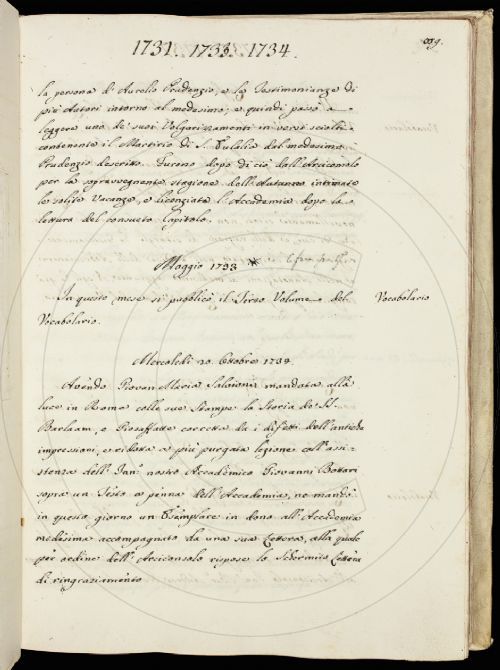 1731. 1733. 1734.
la persona d' Aurelio Prudenzio, e le Testimonianze di
più Autori intorno al medesimo; e quindi passò a
leggere uno de' suoi Volgarizzamenti in versi sciolti
contenente il Martirio di S. Eulalia dal medesimo
Prudenzio descritto. Furono dopo di ciò dall' Arciconsolo
per la sopravvegnente stagione dell' Autunno intimate
le solite Vacanze, e licenziata l' Accademia dopo la
lettura del consueto Capitolo.
Maggio 1733 *
In questo mese si pubblicò il Terzo Volume del
Vocabolario.
Vocabolario
Mercoledì 20. Ottobre 1734.
Avendo Giovan Maria Salvioni mandata alla
luce in Roma colle sue Stampe la Storia de' SS.
Barlaam, e Giosaffatte corretta da i difetti dell' antiche
impressioni, e ridotta a più purgata lezione coll' assi-
stenza dell' Inn.o nostro Accademico Giovanni Bottari
sopra un Testo a penna dell' Accademia, ne mandò
in questo giorno un Esemplare in dono all' Accademia
medesima accompagnato da una sua Lettera, alla quale
per ordine dell' Arciconsolo rispose lo Schermito Lettera
di ringraziamento